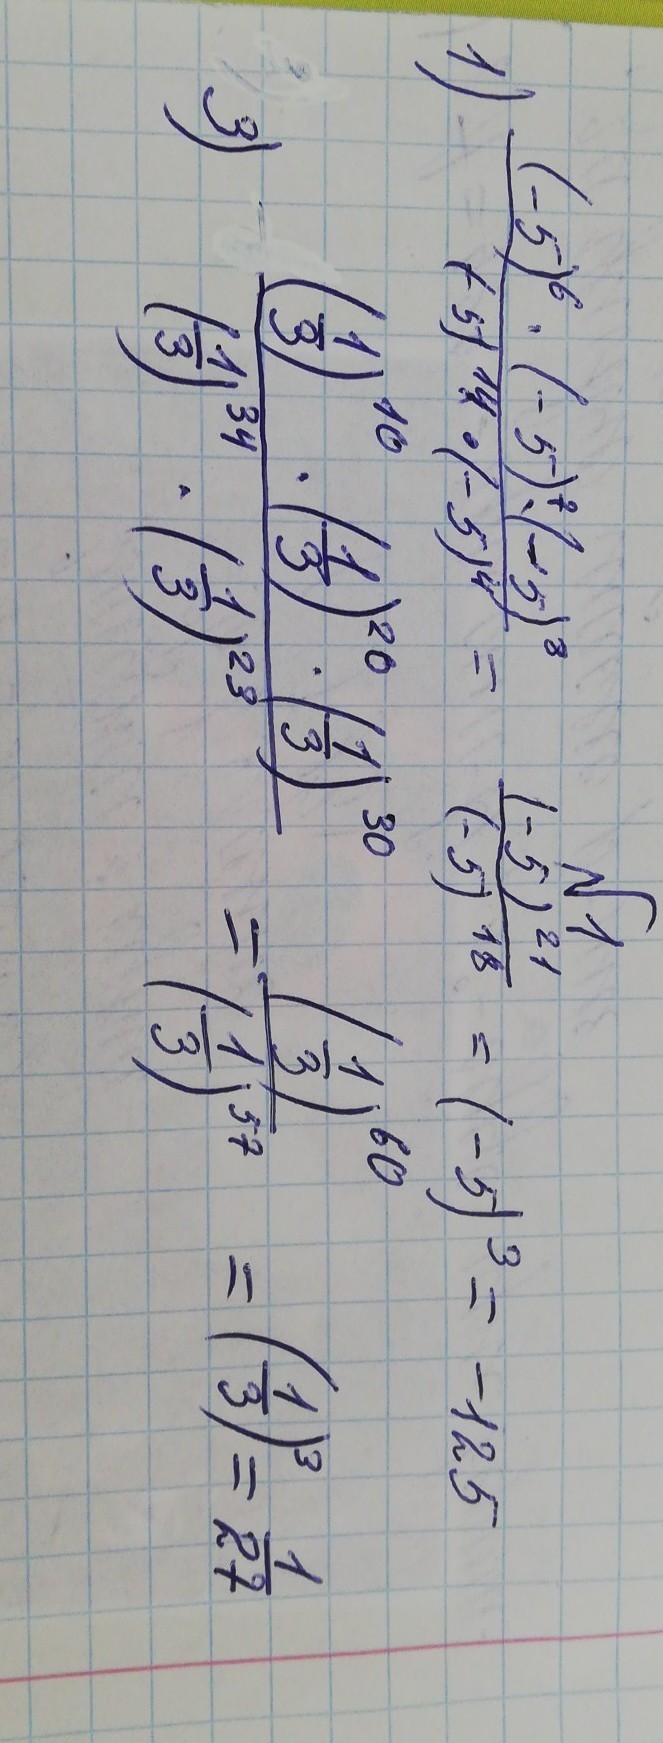 N 1
1) \frac{(-5)^6 · (-5)^7 · (-5)^8}{(-5)^{14} · (-5)^4} = \frac{(-5)^{21}}{(-5)^{18}} = (-5)^3 = -125
3) \frac{(\frac{1}{3})^{10} · (\frac{1}{3})^{20} · (\frac{1}{3})^{30}}{(\frac{1}{3})^{34} · (\frac{1}{3})^{23}} = \frac{(\frac{1}{3})^{60}}{(\frac{1}{3})^{57}} = (\frac{1}{3})^3 = \frac{1}{27}